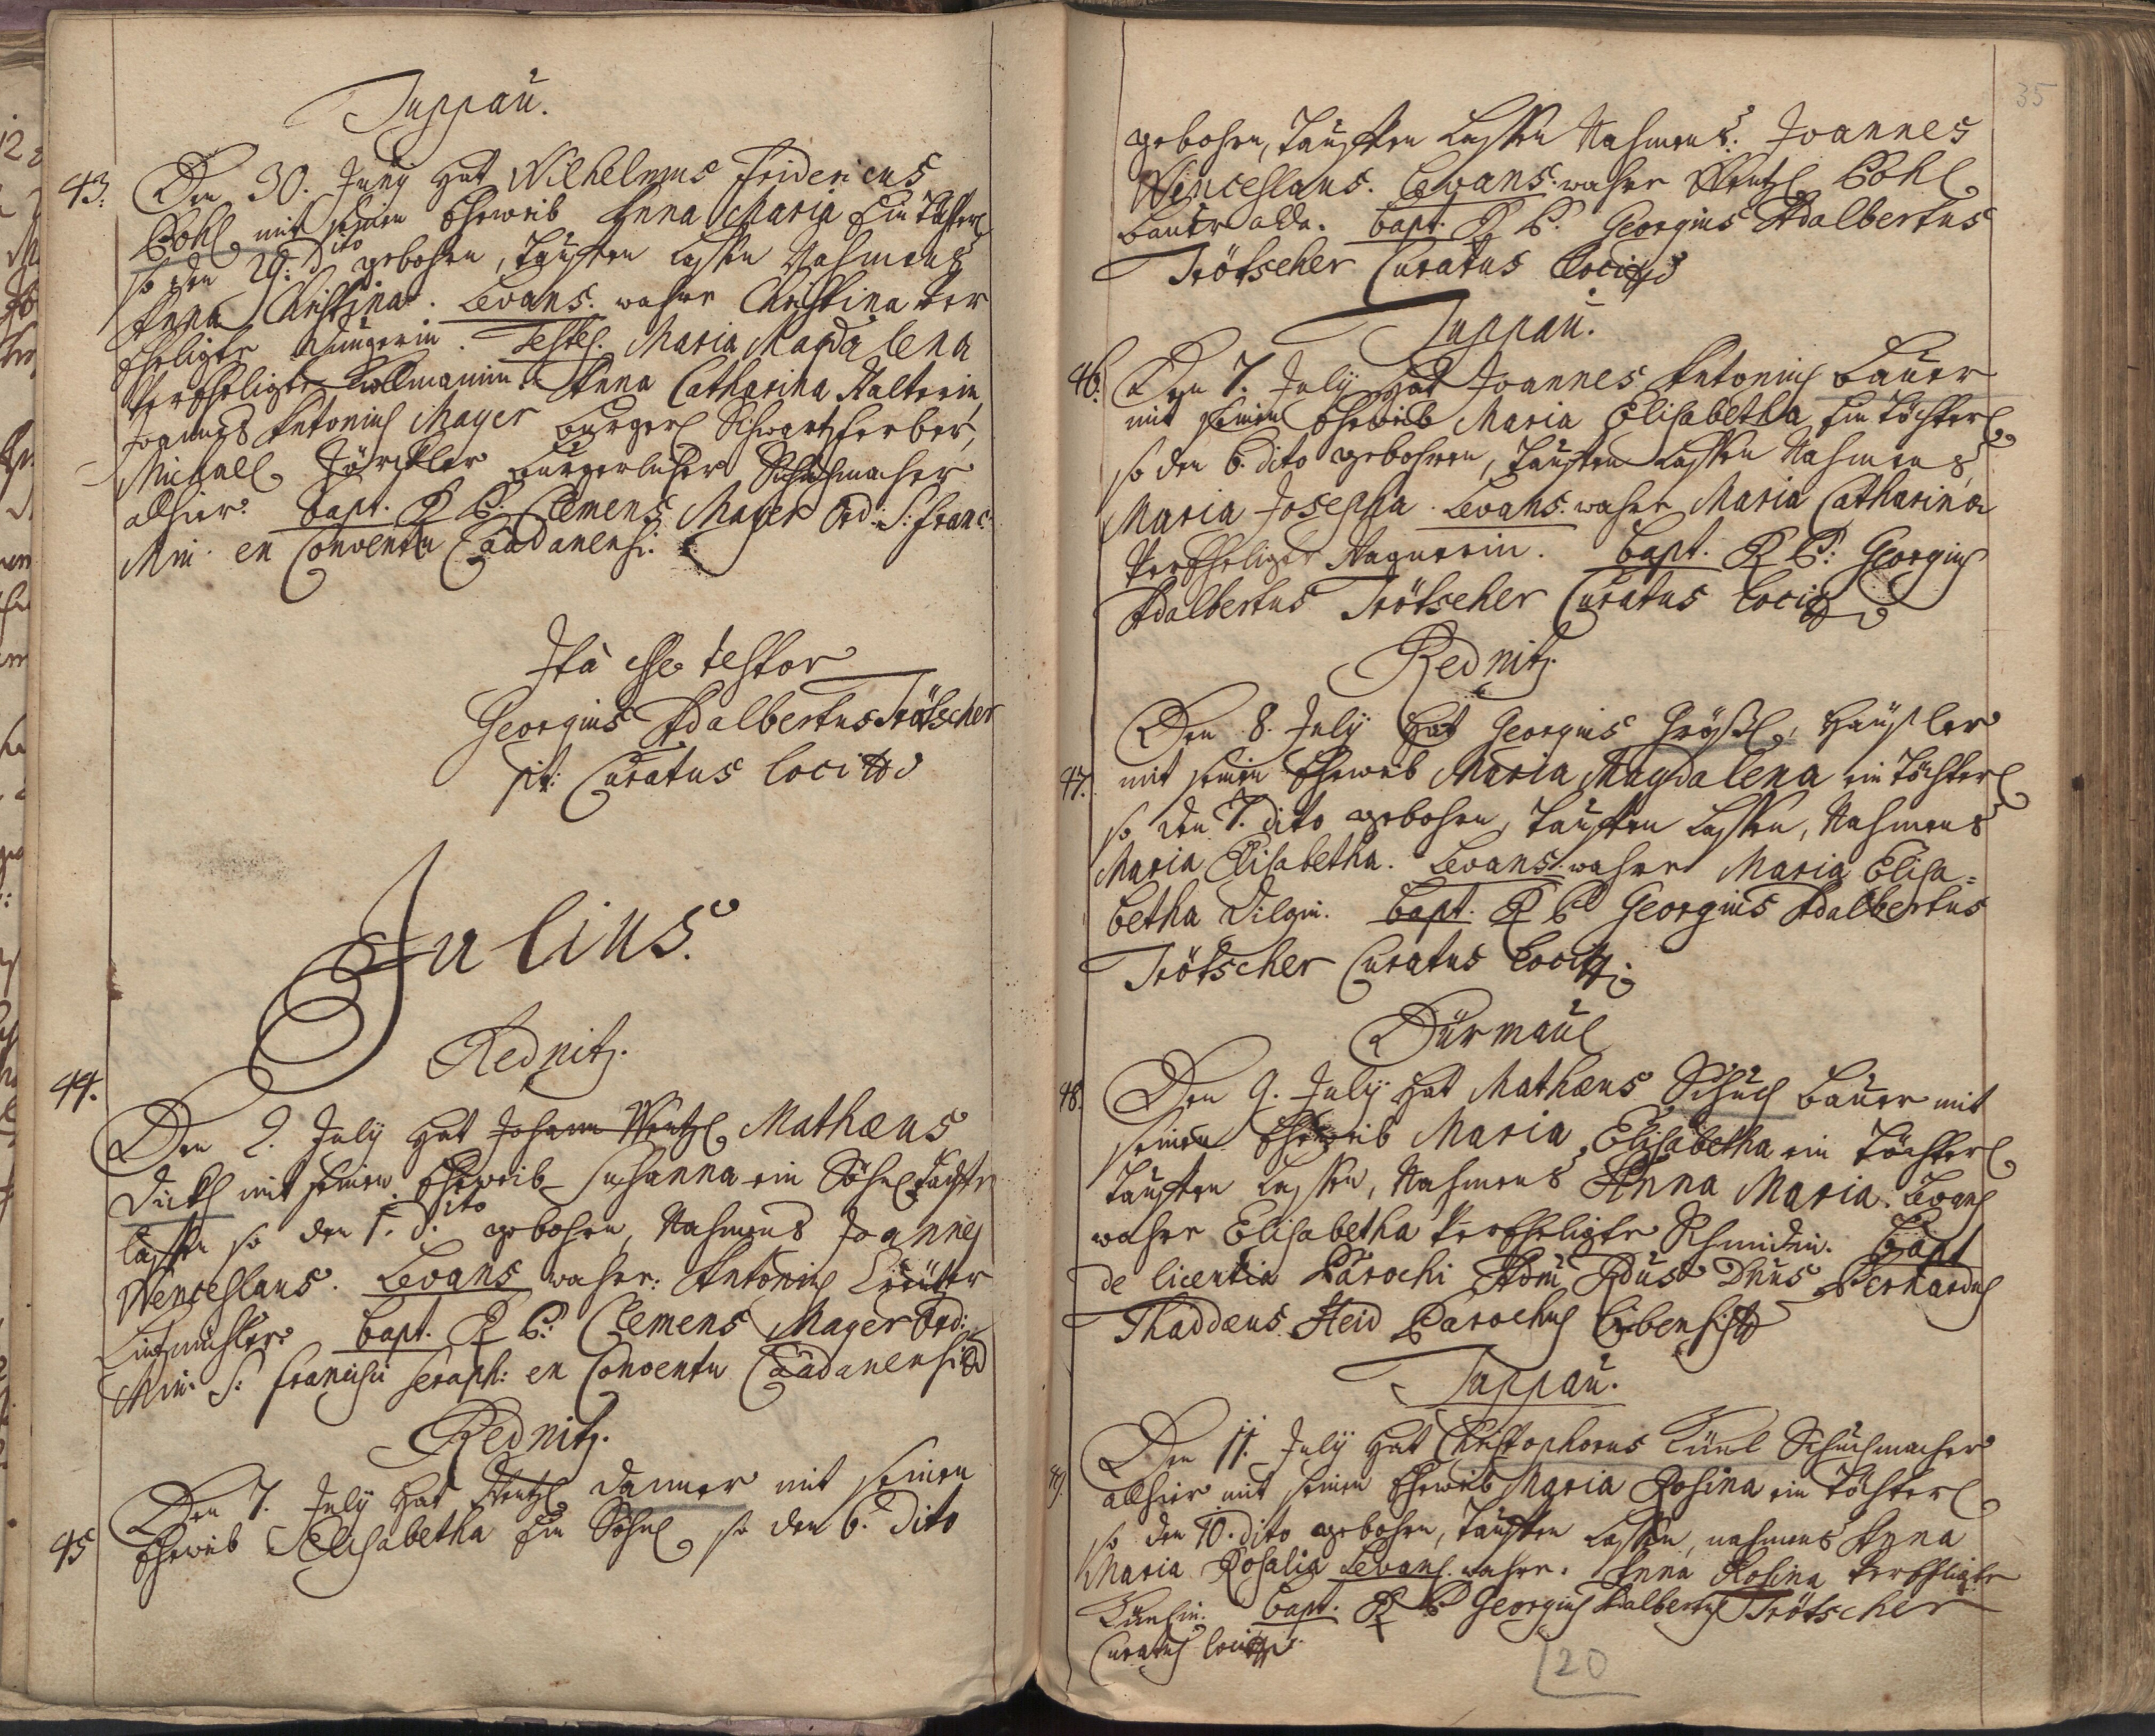 Duppau.
43. Den 30. Juny hat Wilhelmus Fridericus
Pohl mit seinen Eheweib Anna Maria Ein Töchterl
so den 29. dito gebohren, Tauffen Lassen Nahmens
Anna Christina. Levans. wahre Christina Ver
Eheligte Jungerin. Testes. Maria Magdalena
VerEheligte Anna Catharina
Joannes Antonius Mayer Burgerl. Schwartzferber,
Michael Bürgerlicher Schuhmacher
allhier. bapt. R P. Clemens Mayer Ord: S: Franc:
Min. en Conventu Caadanensi.
Ita esse testor
Georgius Adalbertus Trötscher
p.t: Curatus loci
Julius.
Rednitz.
44.
Den 2. July hat Johann Wentzl Mathæus
mit seinen Eheweib Susanna ein Söhnl Tauffen
lassen so den 1. dito gebohren, Nahmens Joannes
Wenceslaus. Levans wahre: Antonius
bapt. R P: Clemens Mayer Ord:
Min: S: Francisci Seraph: en Conventu Caadanensi
Rednitz.
Den 7. July hat Wentzl Danner mit seinen
45 Eheweib Elisabetha Ein Söhnl so den 6. dito
35
gebohren, Tauffen Lassen Nahmens: Joannes
Wenceslaus. Levans. wahre Wentzl Pohl
Bauer alda. bapt. R P. Georgius Adalbertus
Trötscher Curatus Loci
Duppau.
46. Den 7. July hat Joannes Antonius Bauer
mit seinen Eheweib Maria Elisabetha Ein Töchterl
so den 6. dito gebohren, Tauffen Lassen Nahmens
Maria Josepha. Levans. wahre Maria Catharina
VerEheligte Wagnerin. bapt. R P: Georgius
Adalbertus Trötscher Curatus loci
Rednitz.
Den 8. July hat Georgius Größl, Haüßler
47. mit seinen Eheweib Maria Magdalena ein Töchterl
so den 7. dito gebohren, Tauffen Lassen, Nahmens
Maria Elisabetha. Levans. wahre Maria Elisa=
betha bapt. R P Georgius Adalbertus
Trötscher Curatus Loci
Dürmaul
48. Den 9. July hat Mathæus Schuch Bauer mit
seinen Eheweib Maria Elisabetha ein Töchterl
Tauffen Lassen, Nahmens Anna Maria. Levans
wahre Elisabetha VerEheligte Schmidin. bapt
de licentia Parochi Rdus Dnus Bernardus
Thaddæus Heid Parochus
Duppau.
Den 11. July hat Christophorus Künl Schuchmacher
49. allhier mit seinen Eheweib Maria Rosina ein Töchterl
so den 10. dito gebohren, Tauffen Lassen, nahmens Anna
Maria Rosalia Levans. wahre. Anna Rosina VerEheligte
bapt. R P Georgius Adalbertus Trötscher
Curatus loci
20